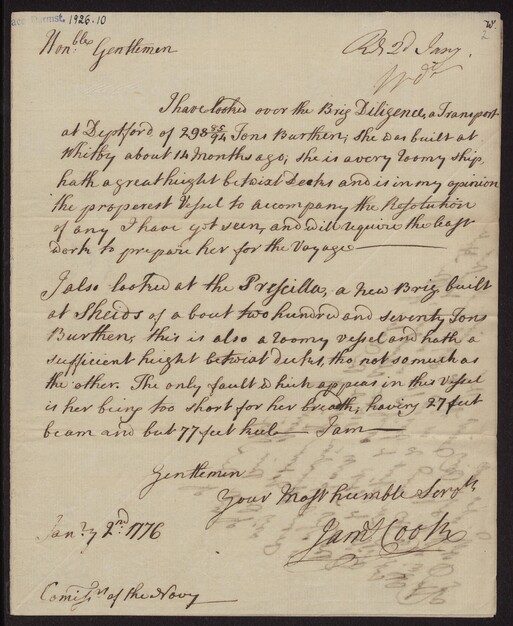 1926.10
Hon.bles Gentlemen
Rd 2d Jany
W.
2
I have looked over the Brig Diligence, a Transport
at Deptford of 298 85/94 Tons Burthen; she was built at
Whitby about 14 Months ago; she is a very roomy ship,
hath a great height betwixt Decks and is in my opinion
the properest Vessel to accompany the Resolution
of any I have yet seen, and will require the least
work to prepare her for the Voyage
I also looked at the Prescilla, a new Brig built
at Sheids of about two hundred and seventy Tons
Burthen, this is also a roomy vessel and hath a
sufficient height betwixt decks, tho, not so much as
the other. The only fault which appears in this Vessel
is her being too short for her breadth, having 27 feet
beam and but 77 feet keele I am
Gentlemen
Your Most humble Servt.
Jams Cook
Jany 2nd 1776
Comissrs of the Navy